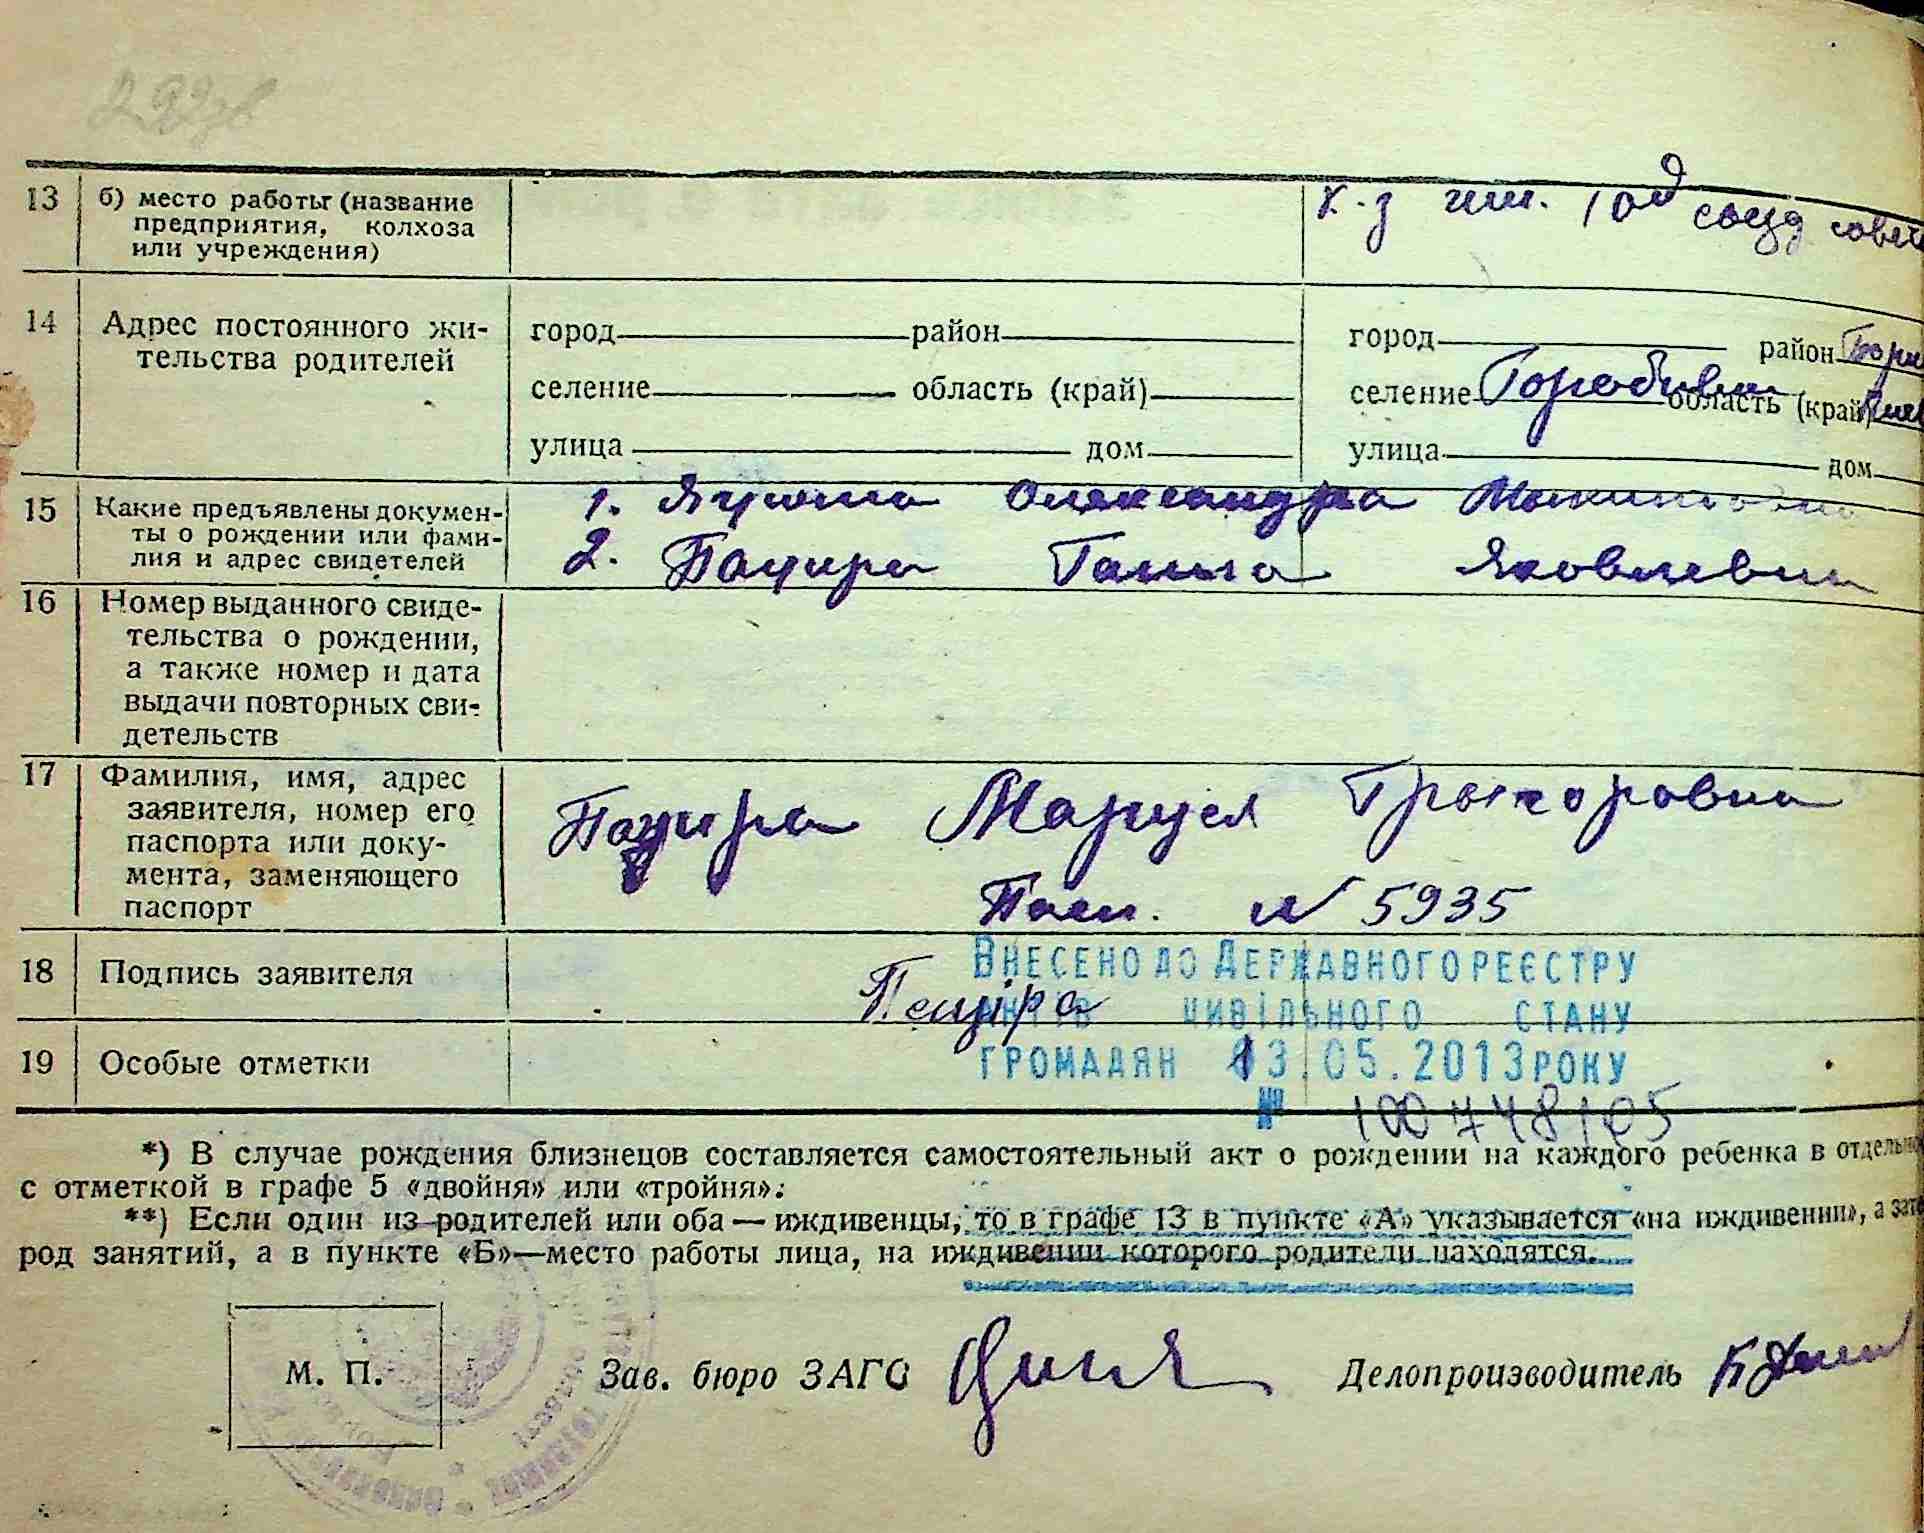 13
б) место работы (название
предприятия, колхоза
или учреждения)
14
Адрес постоянного жи-
тельства родителей
город район
селение область (край)
улица дом
город район
селение область (край
улица дом
15
Какие предъявлены докумен-
ты о рождении или фами-
лия и адрес свидетелей
1. Олександра
2. Пацира Ганна Яковлевна
16
Номер выданного свиде-
тельства о рождении,
а также номер и дата
выдачи повторных сви-
детельств
17
Фамилия, имя, адрес
заявителя, номер его
паспорта или доку-
мента, заменяющего
паспорт
Пацира Маруся
Пасп. № 5935
18
Подпись заявителя
Пацира
ВНЕСЕНО ДО ДЕРЖАВНОГО РЕЄСТРУ
АКТІВ ЦИВІЛЬНОГО СТАНУ
ГРОМАДЯН 13.05.2013 РОКУ
№
19
Особые отметки
*) В случае рождения близнецов составляется самостоятельный акт о рождении на каждого ребенка в
с отметкой в графе 5 «двойня» или «тройня».
**) Если один из родителей или оба — иждивенцы, то в графе 13 в пункте «А» указывается «на иждивении», а
род занятий, а в пункте «Б»—место работы лица, на иждивении которого родители находятся.
М. П.
Зав. бюро ЗАГС
Делопроизводитель